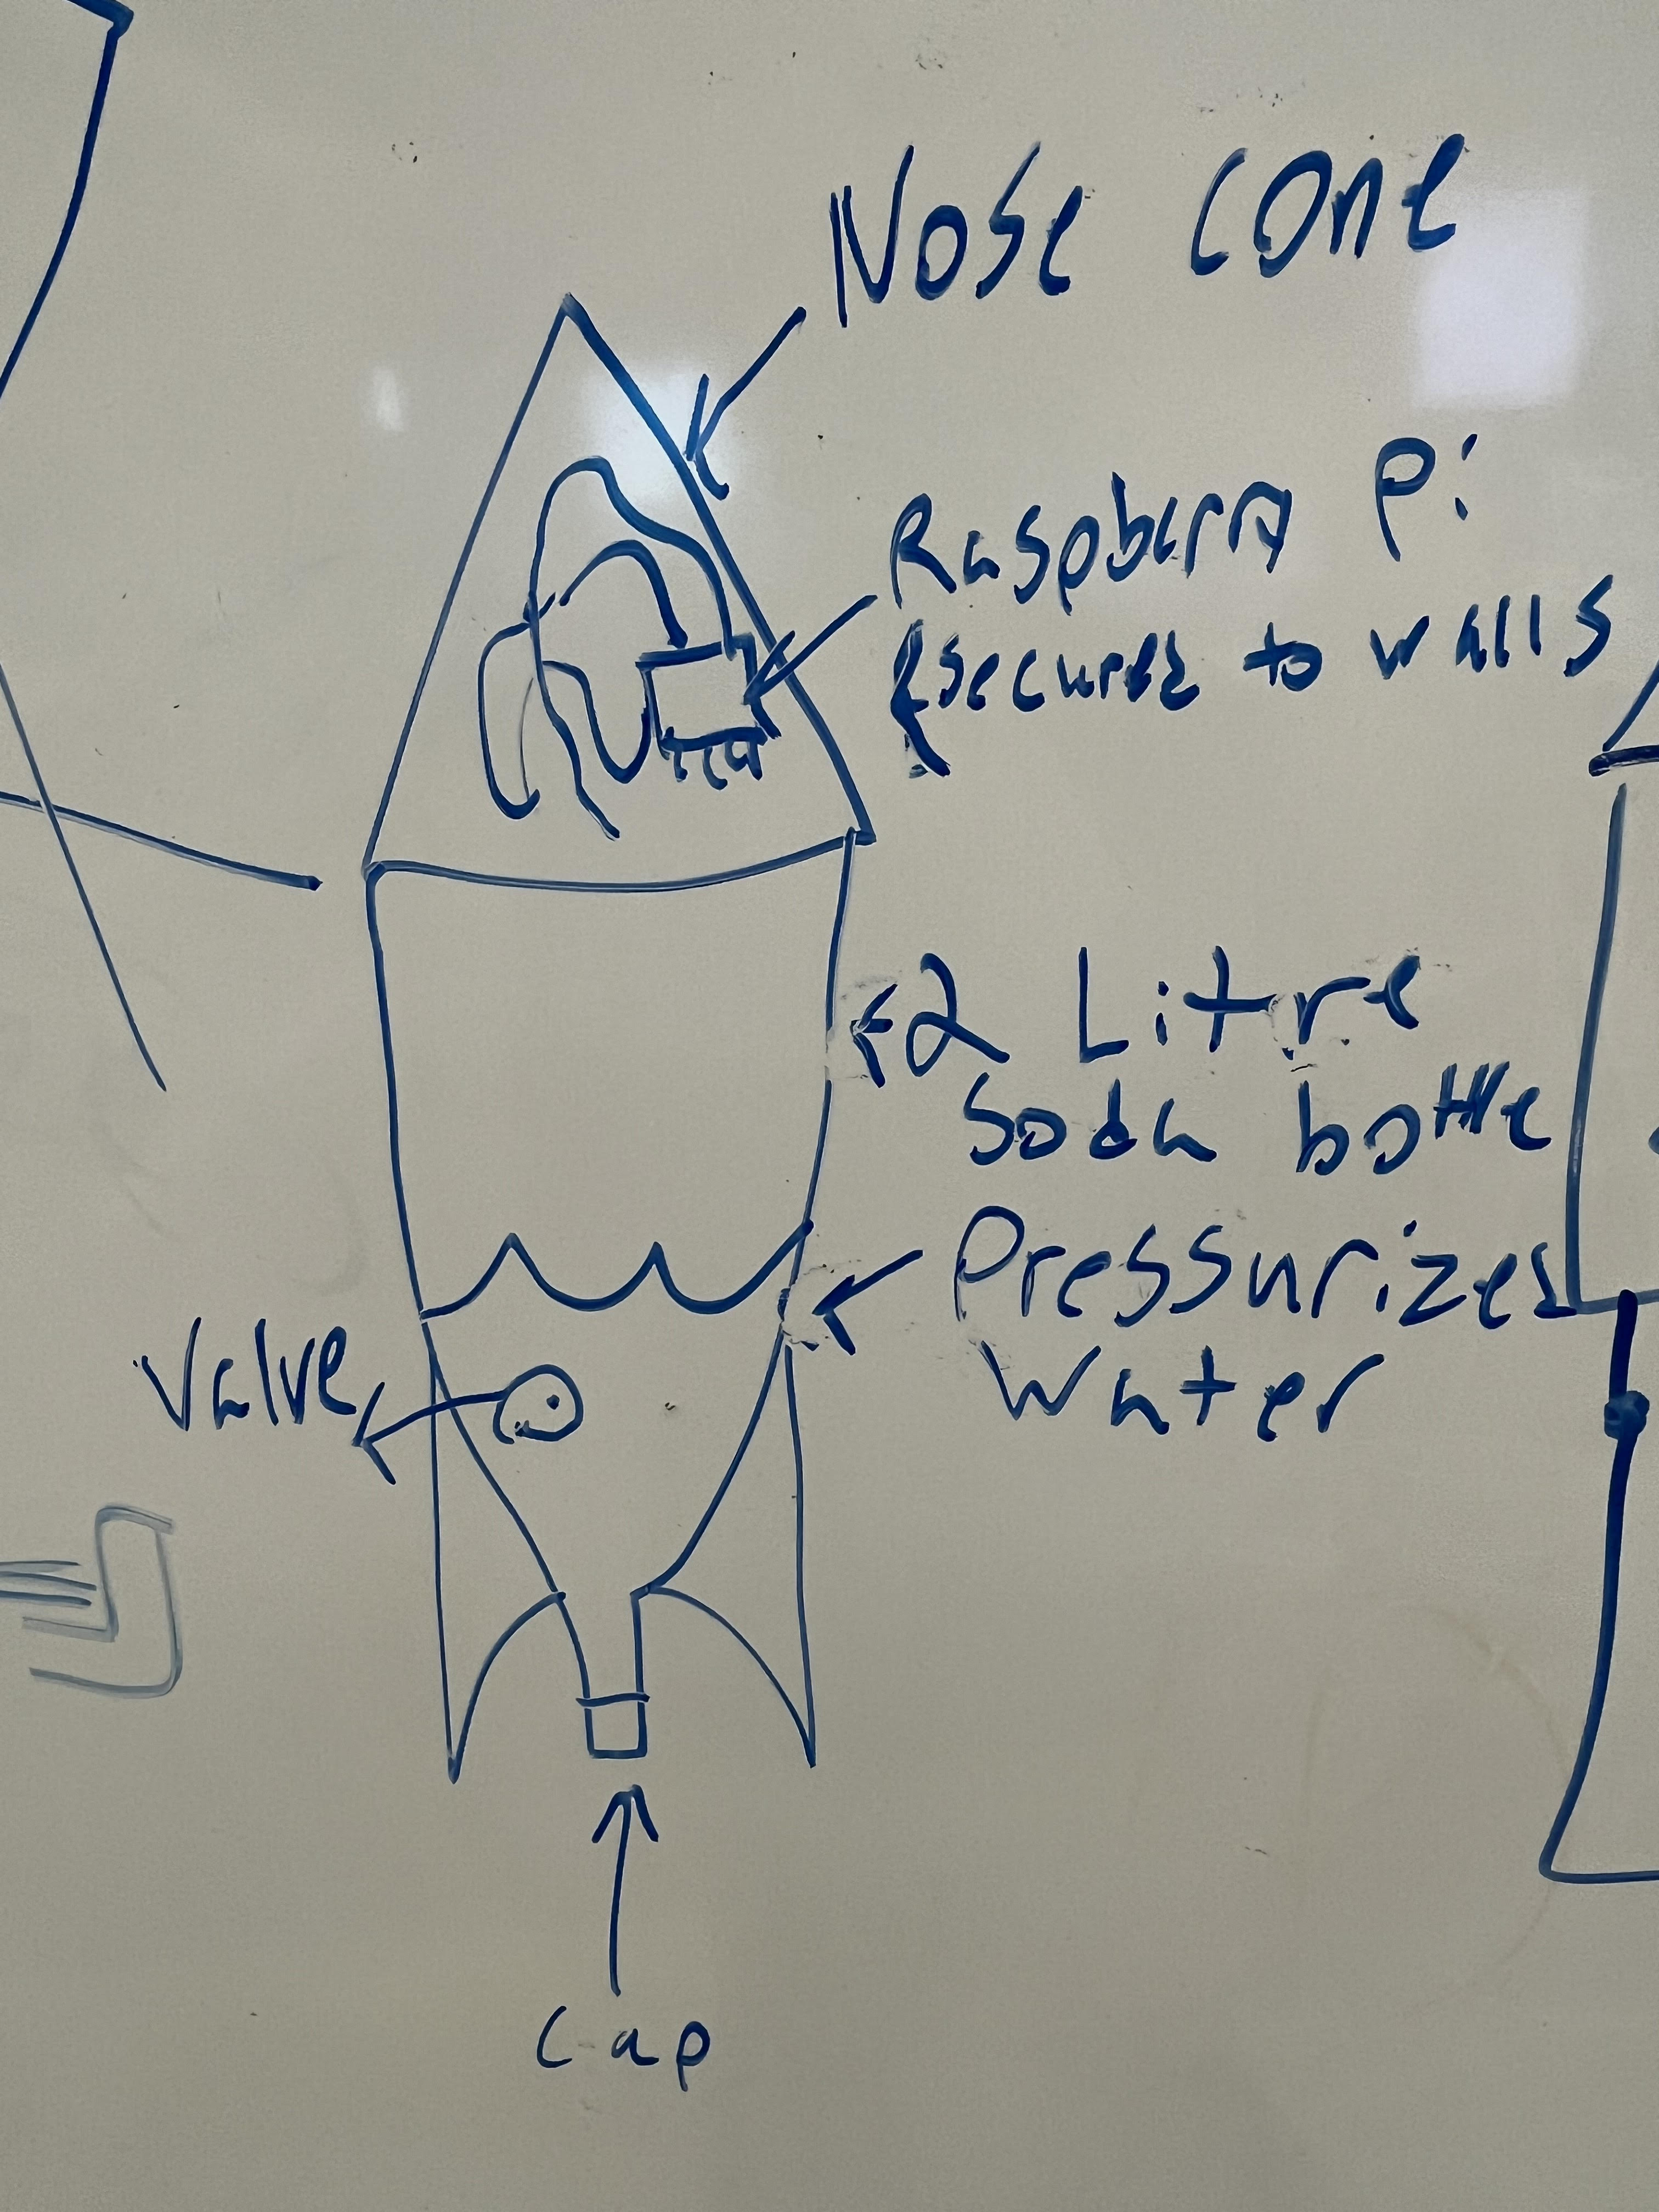 Nose cone
Raspberry Pi
secured to walls
2 Litre
Soda bottle
Pressurized
Water
Valve
Cap